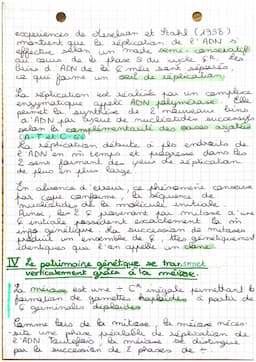 expériences de Meselson et Stahl (1958)
montrent que la réplication de l'ADN s'
effectue selon un mode semi-conservatif
au cours de la phase S du cycle C^R. Les
brins d'ADN de la C mère sont séparés,
ce qui forme un oeil de réplication.
La réplication est réalisée par un complexe
enzymatique appelé ADN polymérase. Elle
permet la synthèse de 2 nouveaux brins
d'ADN par ajout de nucléotides successifs
selon la complémentarité des bases azotées
(A-T et C-G)
La réplication débute à plsr endroits de
l'ADN en m temps et progresse dans les
2 sens formant des yeux de réplication
de plus en plus large.
En absence d'erreur, ce phénomène conserve
par copie conforme, la séquence de
nucléotides de la molécule initiale.
Ainsi, les 2 C provenant par mitose d'une
C initiale possèdent exactement la m
info génétique. La succession de mitoses
produit un ensemble de C, ttes génétiquement
identiques que l'on appelle un clone.
IV Le patrimoine génétique se transmet
verticalement grâce à la méiose.
La méiose est une ÷ C^R inégale permettant la
formation de gamètes haploïdes à partir de
C germinales diploïdes
Comme lors de la mitose, la méiose néces-
site une phase préalable de réplication de
l'ADN. Toutefois, la méiose se distingue
par la succession de 2 phases de ÷